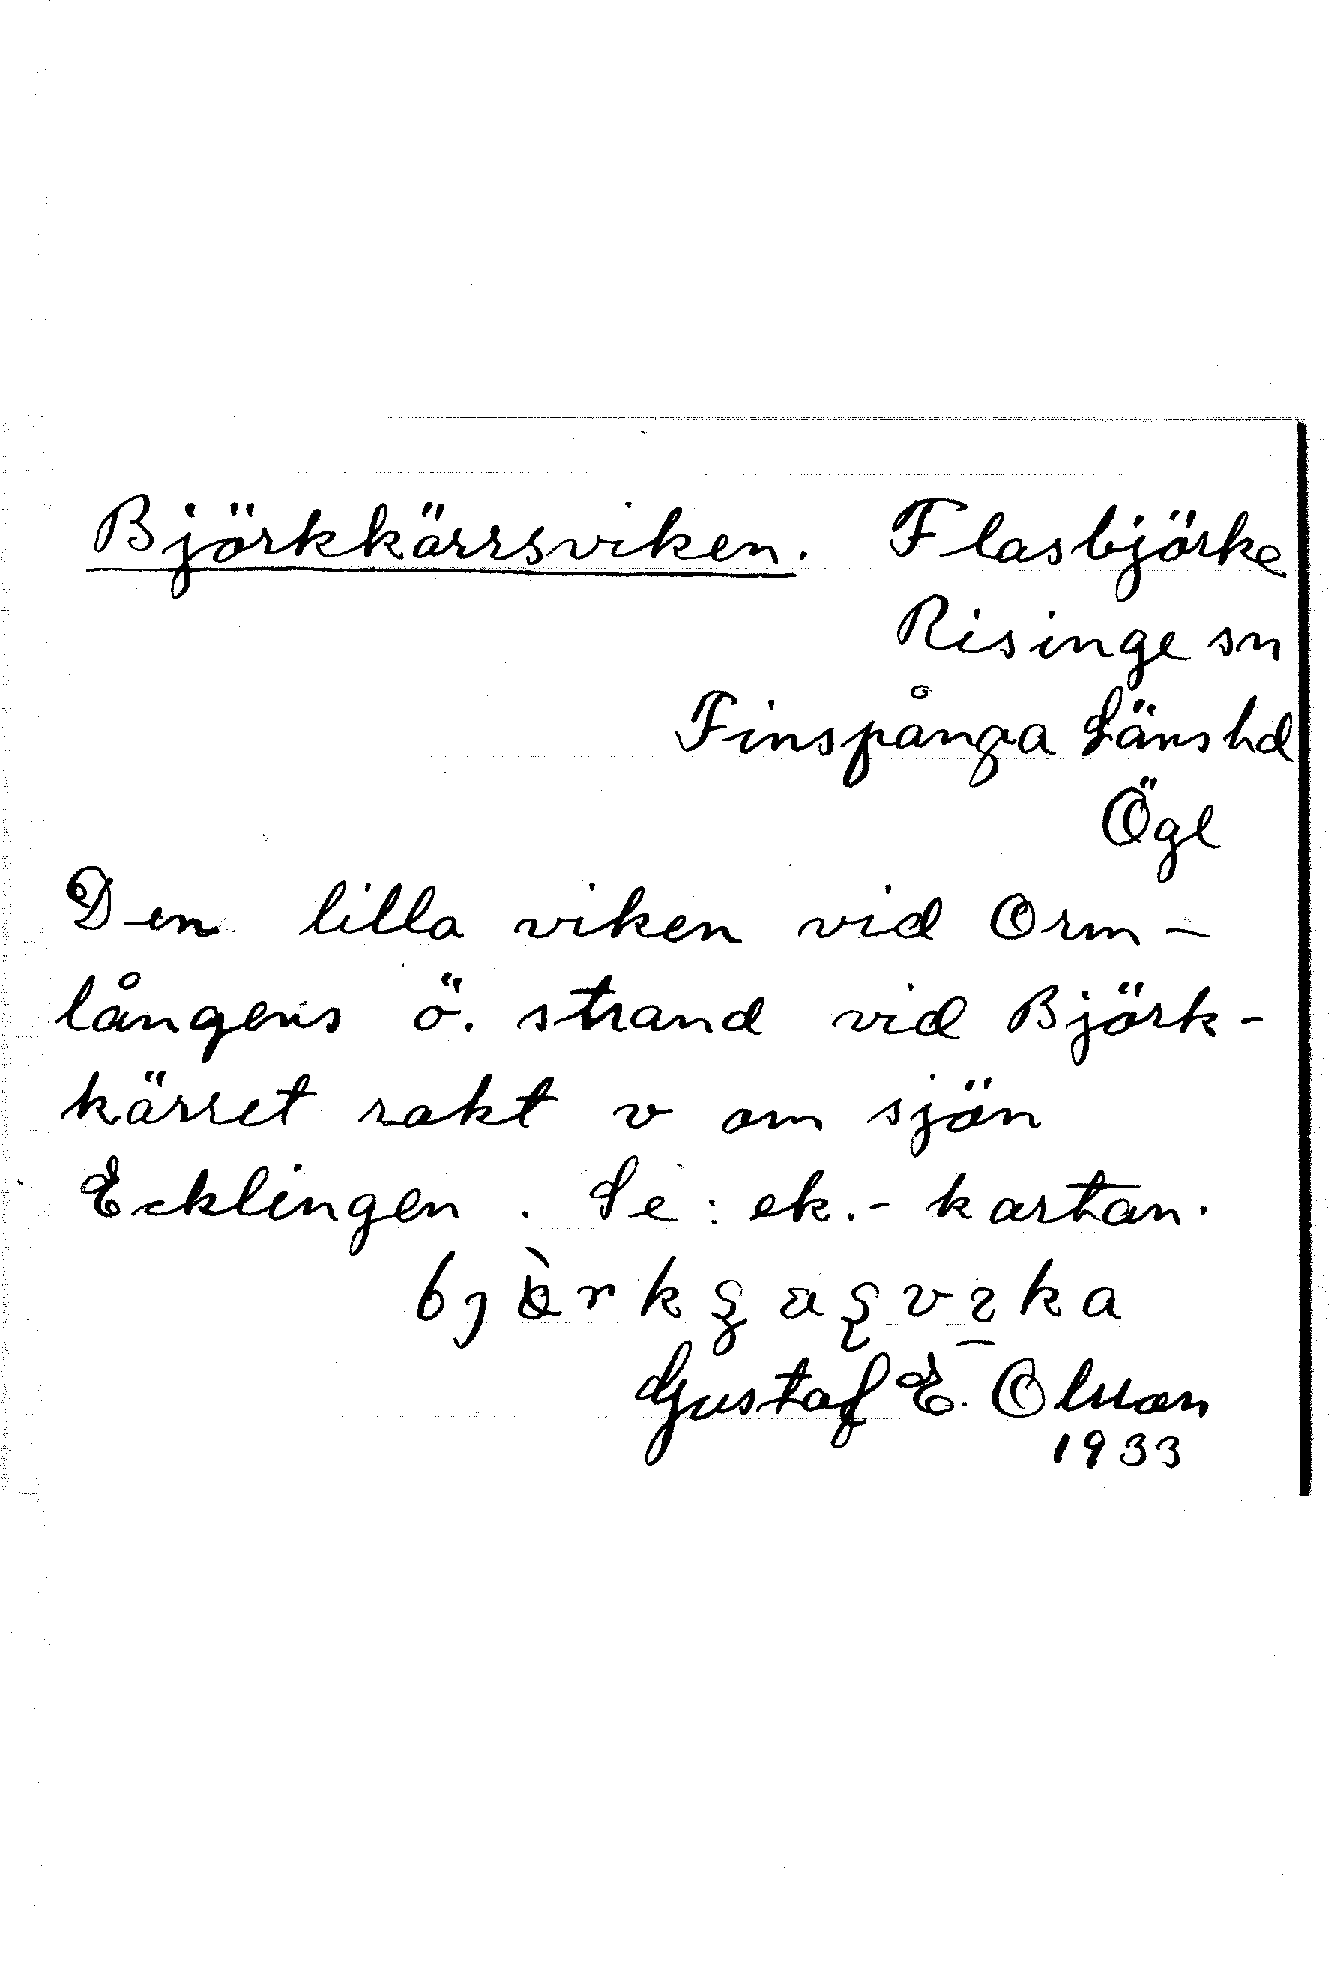 Björkkärrsviken. Flasbjörke
Risinge sn
Finspånga Länshd
Ögl
Den lilla viken vid Orm-
långens ö. strand vid Björk-
kärret rakt v om sjön
Ecklingen. Se: ek.-kartan.
Gustaf E. Olsson
1933